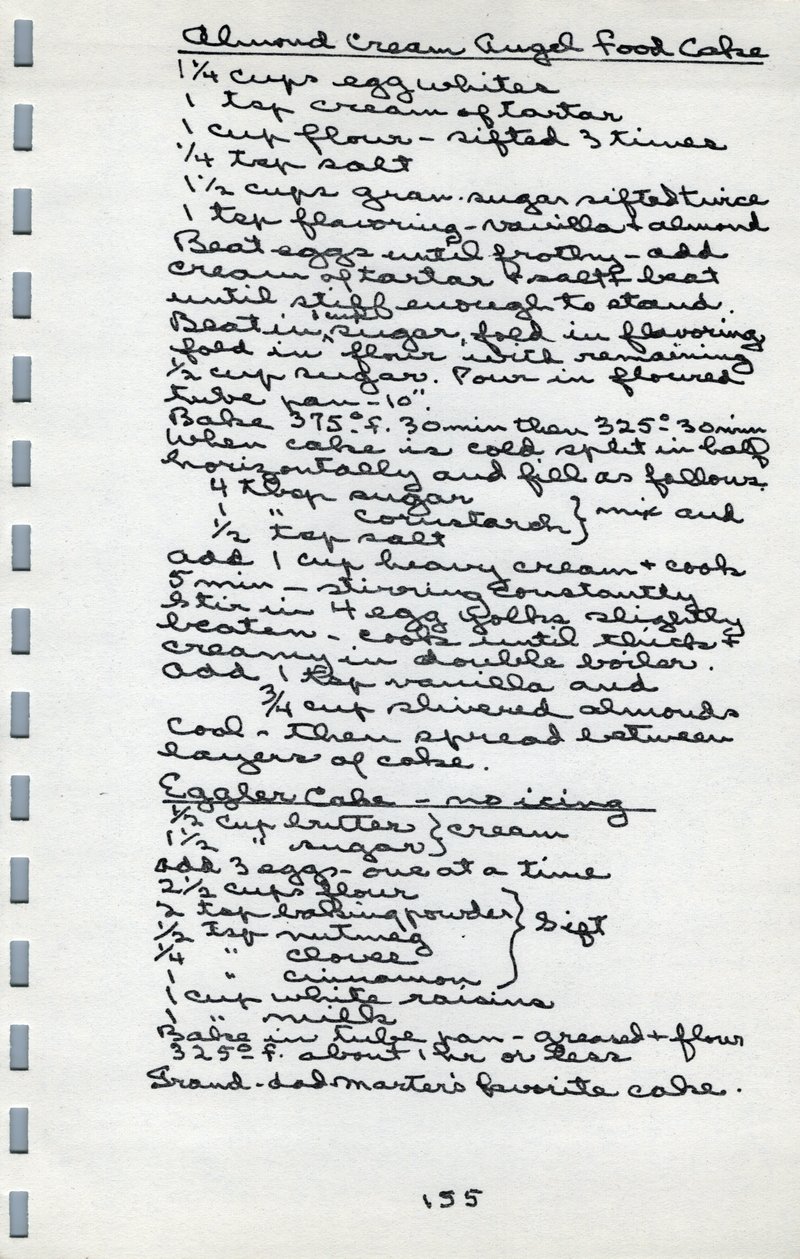 Almond Cream Angel Food Cake
1 1/4 cups egg whites
1 tsp cream of tartar
1 cup flour - sifted 3 times
1/4 tsp salt
1 1/2 cups gran. sugar sifted twice
1 tsp flavoring - vanilla + almond
Beat eggs until frothy - add
cream of tartar + salt + beat
until stiff enough to stand.
Beat in 1 cup sugar, fold in flavoring,
fold in flour with remaining
1/2 cup sugar. Pour in floured
tube pan - 10".
Bake 375° f. 30 min then 325° 30 min
When cake is cold split in half
horizontally and fill as follows.
4 tbsp sugar
1 " cornstarch } mix and
1/2 tsp salt
add 1 cup heavy cream + cook
5 min - stirring constantly
Stir in 4 egg yolks slightly
beaten - cook until thick +
creamy in double boiler.
add 1 tsp vanilla and
3/4 cup slivered almonds
Cool - then spread between
layers of cake.
Eggler Cake - no icing
1/2 cup butter } cream
1 1/2 " sugar }
add 3 eggs - one at a time
2 1/2 cups flour
2 tsp baking powder } Sift
1/2 tsp nutmeg
1/4 " cloves
1 " cinnamon
1 cup white raisins
1 " milk
Bake in tube pan - greased + flour
325° f. about 1 hr or less
Grand-dad Marter's favorite cake.
155